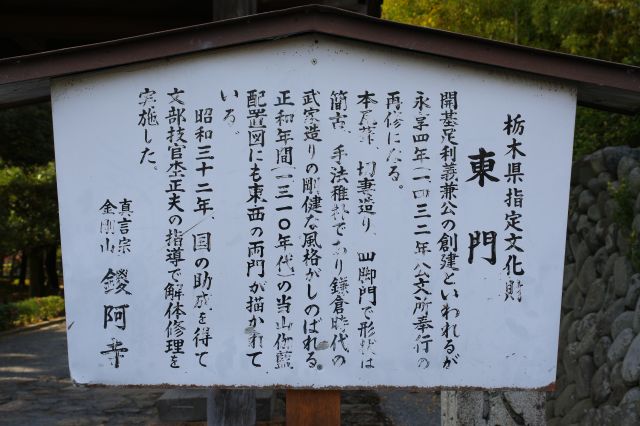 栃木県指定文化財
東門
開基足利義兼公の創建といわれるが
永享四年(一四三二年)公文所奉行の
再修になる。
本瓦葺、切妻造り、四脚門で形状は
簡古、手法稚拙であり鎌倉時代の
武家造りの剛健な風格がしのばれる。
正和年間(一三一〇年代)の当山伽藍
配置図にも東西の両門が描かれて
いる。
昭和三十二年、国の助成を得て
文部技官 正夫の指導で解体修理を
実施した。
真言宗
金剛山 鑁阿寺